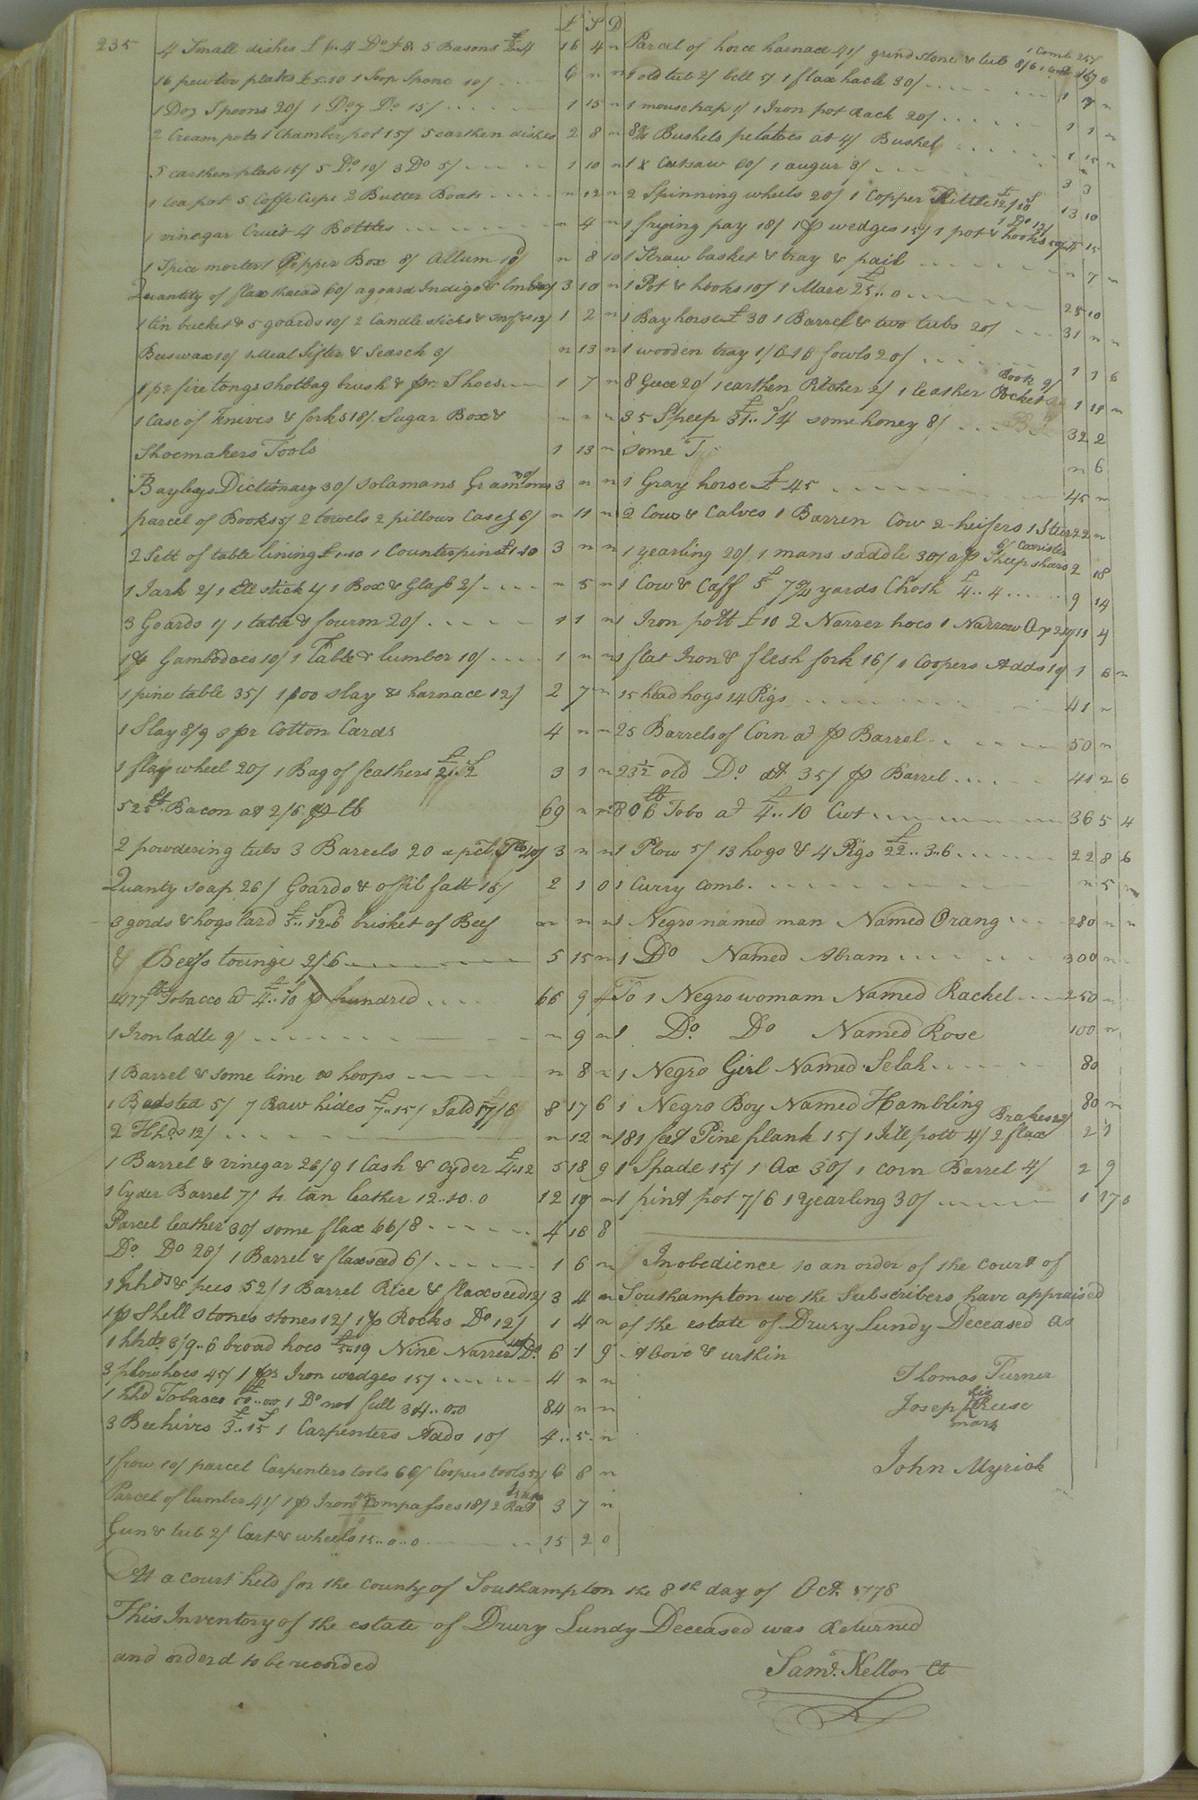 235
£ S D
4 Small dishes £ 6.4 Do £ 8. 5 Basons £2.4 16 4 "
16 pewter plates £5..10 1 Soop Spone 10/ 6 " "
1 Doz Spoons 20/ 1 Do 7 Do 15/ 1 15 "
2 Cream pots 1 Chamber pot 15/ 5 earthen dishes 2 8 "
5 earthen plats 15/ 5 Do 10/ 3 Do 5/ 1 10 "
1 tea pot 5 Coffe Cups 2 Butter Boats " 12 "
1 vinegar Cruet 4 Bottles " 4 "
1 Spice morter 1 Pepper Box 8/ Allum 10d " 8 10
Quantity of flax thread 60/ a goard Indigo & 3 10 "
1 tin bucket & 5 goards 10/ 2 Candle sticks & 12/ 1 2 "
Beeswax 10/ 1 Meal Sifter & Search 3/ " 13 "
1 pr fire tongs shotbag brush & pr Shoes 1 7 "
1 Case of knives & forks 18/ Sugar Box & " " "
Shoemakers Tools 1 13 "
Bayleys Dictionary 30/ Solamans 3 " "
parcel of Books 5/ 2 towels 2 pillows Cases 6/ " 11 "
2 Sett of table lining £1..10 1 Counterpin £1..10 3 " "
1 Jark 2/ 1 Ell stick 1/ 1 Box & Glass 2/ " 5 "
3 Goards 1/ 1 table & fourm 20/ 1 1 "
1 p Gambodoes 10/ 1 Table & lumber 10/ 1 " "
1 pine table 35/ 1 slay & harnace 12/ 2 7 "
1 Slay 8/9 pr Cotton Cards 4 " "
1 flax wheel 20/ 1 Bag of feathers £2..2 3 2 "
525 lb Bacon at 2/6 p lb 69 " "
2 powdering tubs 3 Barrels 20 3 " "
Quanty soap 26/ Goards & offil fatt 15/ 2 1 0
3 gords & hogs lard £5..12..6 brisket of Beef " " "
& Beefs tounge 2/6 5 15 "
1477 lb Tobacco at £4..10 p hundred 66 9 4
1 Iron ladle 9/ " 9 "
1 Barrel & some lime & hoops " 8 "
1 Bedsted 5/ 7 Raw hides £7..15/ 8 17 6
2 Hhds 12/ " 12 "
1 Barrel & vinegar 26/9 1 Cask & Cyder £4..12 5 18 9
1 Cyder Barrel 7/ 4 tan leather 12..10..0 12 17 "
Parcel leather 30/ some flax 66/8 4 16 8
Do Do 20/ 1 Barrel & flaxseed 6/ 1 6 "
1 hhds & peas 52/ 1 Barrel Rice & flaxseed 12/ 3 4 "
1 p Shell stones 12/ 1 p Rocks Do 12/ 1 4 "
1 hhds 8/9..6 broad hoes Nine Narrow Do 6 1 9
3 plow hoes 45/ 1 pr Iron wedges 15/ 4 " "
1 hhd Tobacco £50..00 1 Do not full 34..0..0 84 " "
3 Bee hives £3..15 1 Carpenters Adds 10/ 4 .. 5 "
1 frow 10/ parcel Carpenters tools 66/ Coopers tools 52/ 6 8 "
Parcel of lumber 41/ 1 p Iron Compasses 18/ 2 3 7 "
Gun & tub 2/ Cart & wheels 15..0..0 15 2 0
Parcel of horse harnace 41/ grind stone & tub 8/6
1 old tub 2/ bell 5/ 1 flax hacle 30/ 1 7 "
1 mouse trap 1/ 1 Iron pot rack 20/ 1 1 "
8¾ Bushels petatoes at 4/ Bushel 1 15 "
1 X Cutsaw 60/ 1 augur 3/ 3 3
2 Spinning wheels 20/ 1 Copper Kittle £12/10 13 10
1 frying pay 18/ 1 p wedges 15/ 1 pot & hooks
1 Straw basket & tray & pail " 7 "
1 Pot & hooks 10/ 1 Mare £25..0 25 10
1 Bay horse £30 1 Barrel & two tubs 20/ 31 " "
1 wooden tray 1/6 16 fowls 20/ 1 1 6
8 Geese 20/ 1 earthen Pitcher 2/ 1 leather Pocket Book 9/ 1 11 "
35 Sheep £31..14 some honey 8/ 32 2
some " 6
1 Gray horse £45 45 "
2 Cows & Calves 1 Barren Cow 2 heifers 1 Steer 22 "
1 yearling 20/ 1 mans saddle 30/ a p Sheep shears 6/ Cannister 2 18
1 Cow & Caff £5 7¾ yards Cloth £4..4 9 14
1 Iron pott £10 2 Narrer hoes 1 Narrow Ax 11 4
1 flat Iron & flesh fork 16/ 1 Coopers Adds 10/ 1 6 "
15 head hogs 14 Pigs 41 "
25 Barrels of Corn at p Barrel 50 "
23½ old Do at 35/ p Barrel 41 2 6
806 lb Tobo at £4..10 Cwt 36 5 4
1 Plow 5/ 13 hogs & 4 Pigs £22..3..6 22 8 6
1 Curry comb. " 5 "
1 Negro named man Named Orang 280 " "
1 Do Named Abram 300 "
To 1 Negro womam Named Rachel 250 "
1 Do. Do Named Rose 100 "
1 Negro Girl Named Selah 80
1 Negro Boy Named Hambling 80 "
181 feet Pine plank 15/ 1 pott 4/ 2 flax Brakes 2 1
1 Spade 15/ 1 Ax 30/ 1 corn Barrel 4/ 2 9
1 pint pot 7/6 1 yearling 30/ 1 17 6
In obedience to an order of the Court of
Southampton we the Subscribers have appraised
of the estate of Drury Lundy Deceased as
Above & urthin
Thomas Turner
his
Joseph Reese
mark
John Myrick
At a court held for the county of Southampton the 8th day of Oct. 1778
This Inventory of the estate of Drury Lundy Deceased was Returned
and orderd to be recorded
Saml. Kello Ct